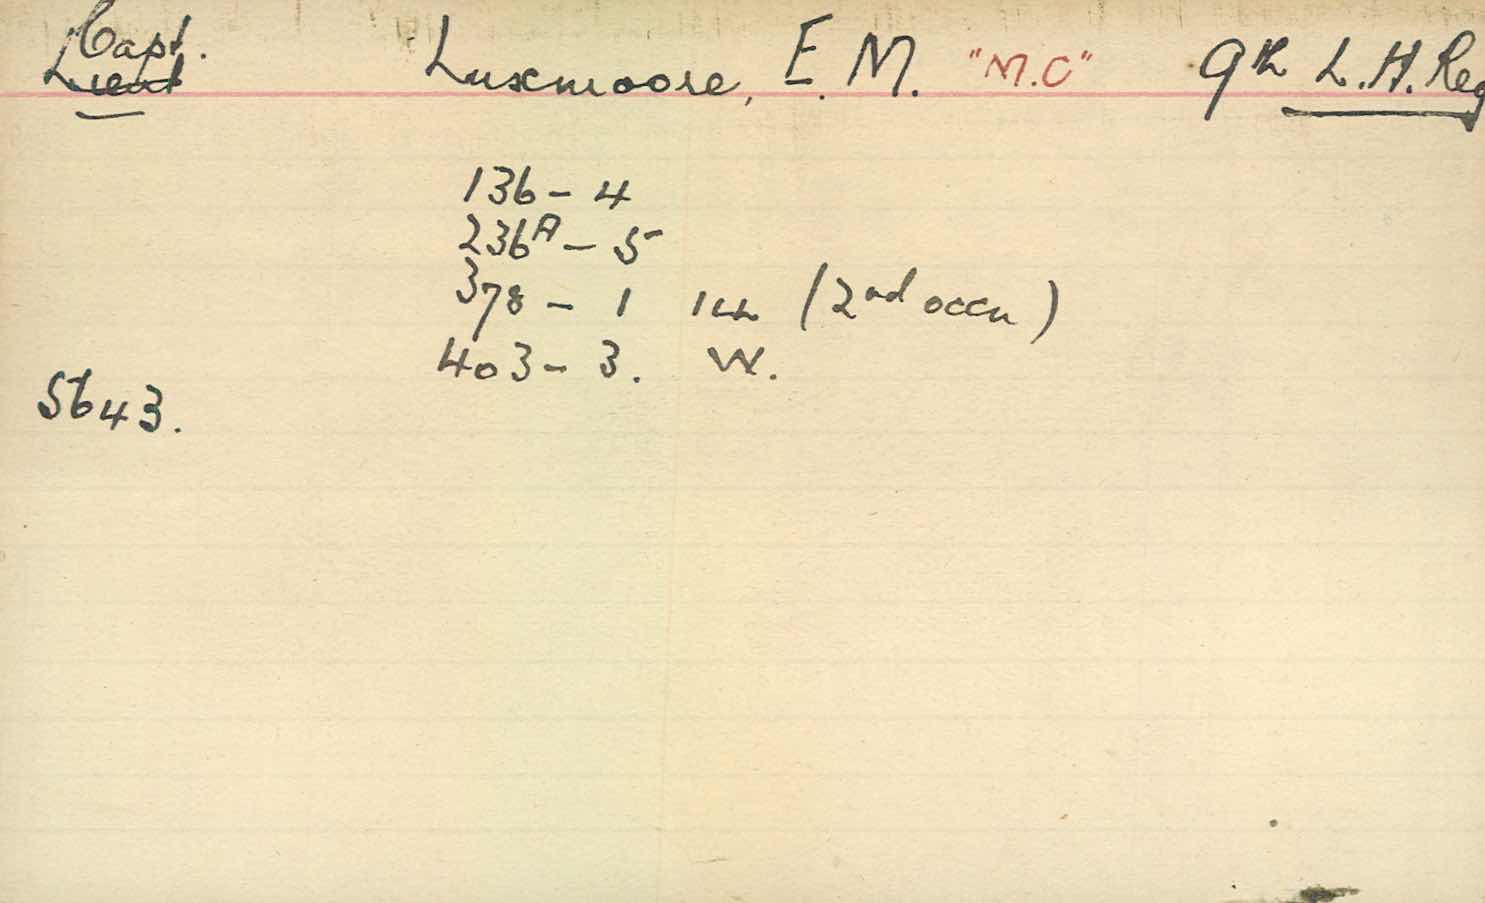 Capt.
Lieut Luxmoore, E. M. "M.C" 9th L.H. Reg
136 - 4
236A - 5
378 - 1 Ill (2nd occn)
403 - 3. W.
5643.